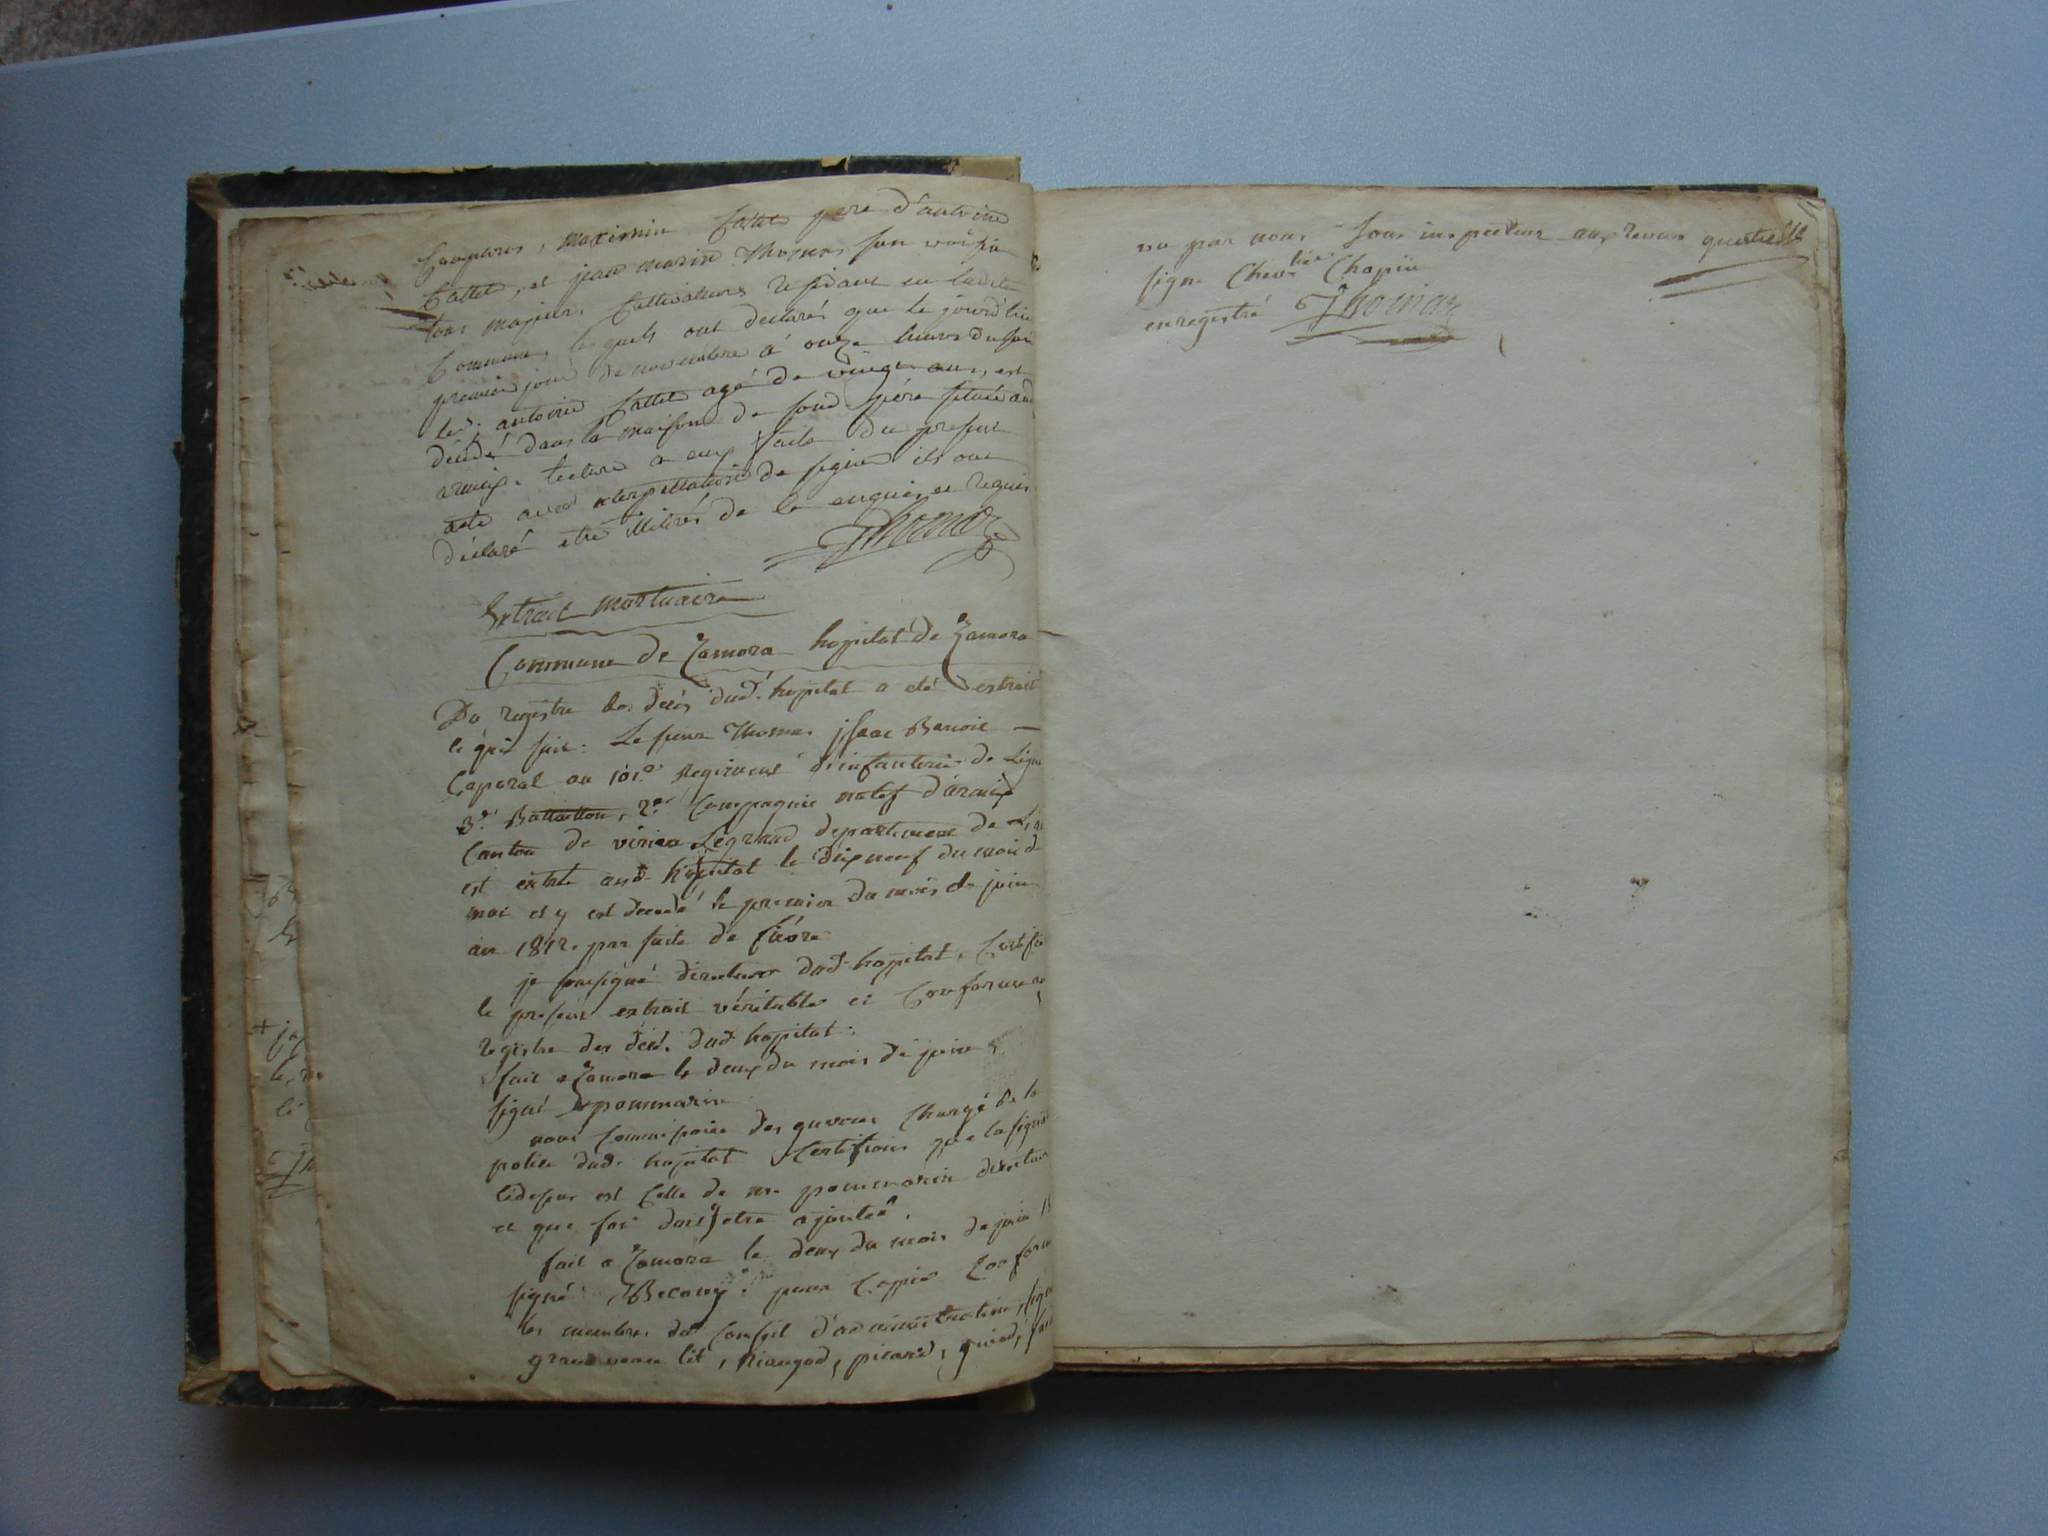 Comparus, maximin Cattet pere d'antoine
Cattet, et jean marin Thomas son voisin
tous majeurs, Cultivateurs residant en ladite
Commune, lesquels ont declarés que le jourd'hui
premier jour de novembre a onze heures du soir
led. antoine Cattet agé de vingt ans, est
décédé dans la maison de sond. père située aud
aruix. lecture a eux faite du present
acte avec interpellation de signer ils ont
déclaré etre illitérés de ce enquis et requis
Thomas
Extrait mortuaire
Commune de Zamora hopital de Zamora
Du registre des décès dud. hopital a été extrait
ce qui suit. Le sieur Thomas jsaac Benoit
Caporal au 101.e Regiment d'infanterie de Ligne
3.e Battaillon, 2.e Compagnie natif d'aruix
Canton de virieu Legrand departement de
est entré aud. hopital le dix neuf du mois de
mai et y est decedé le premier du mois de juin
an 1812. par suite de fièvre
je soussigné directeur dud. hopital. Certifie
le present extrait véritable et Conforme au
registre des décés dud. hopital.
fait a Zamora le deux du mois de juin
signé pommarin
nous Commissaire des guerres Chargé de la
police dud. hopital Certifions que la signat
cidessus est Celle de mr pommarin directeur
et que foi doit y etre ajoutée.
fait a Zamora le deux du mois de juin 18
signé Becouy. pour Copie Conforme
les membres du Conseil d'administration, signé
lit, picard,
vu par nous Sous inspecteur aux revues
signé Chevlier Chopin
enregistré Thomas